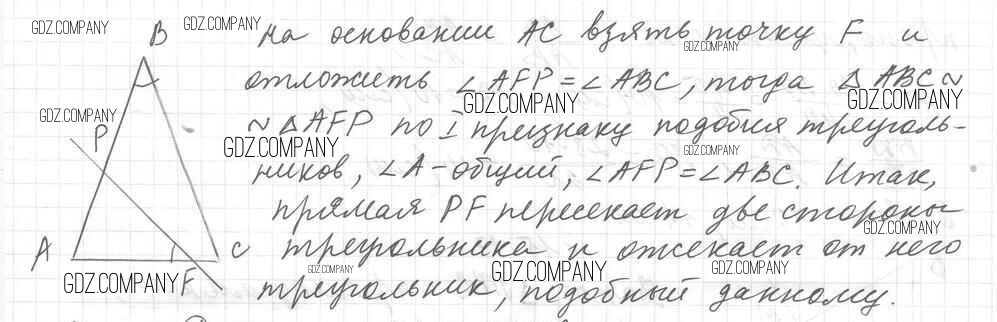 GDZ.COMPANY GDZ.COMPANY
B на основании AC взять точку F и
GDZ.COMPANY
отложить ∠AFP = ∠ABC, тогда △ABC ~
GDZ.COMPANY GDZ.COMPANY
GDZ.COMPANY
P ~ △AFP по I признаку подобия треуголь-
GDZ.COMPANY GDZ.COMPANY
ников, ∠A - общий, ∠AFP = ∠ABC. Итак,
прямая PF пересекает две стороны
GDZ.COMPANY
A C треугольника и отсекает от него
GDZ.COMPANY GDZ.COMPANY GDZ.COMPANY GDZ.COMPANY
F треугольник, подобный данному.